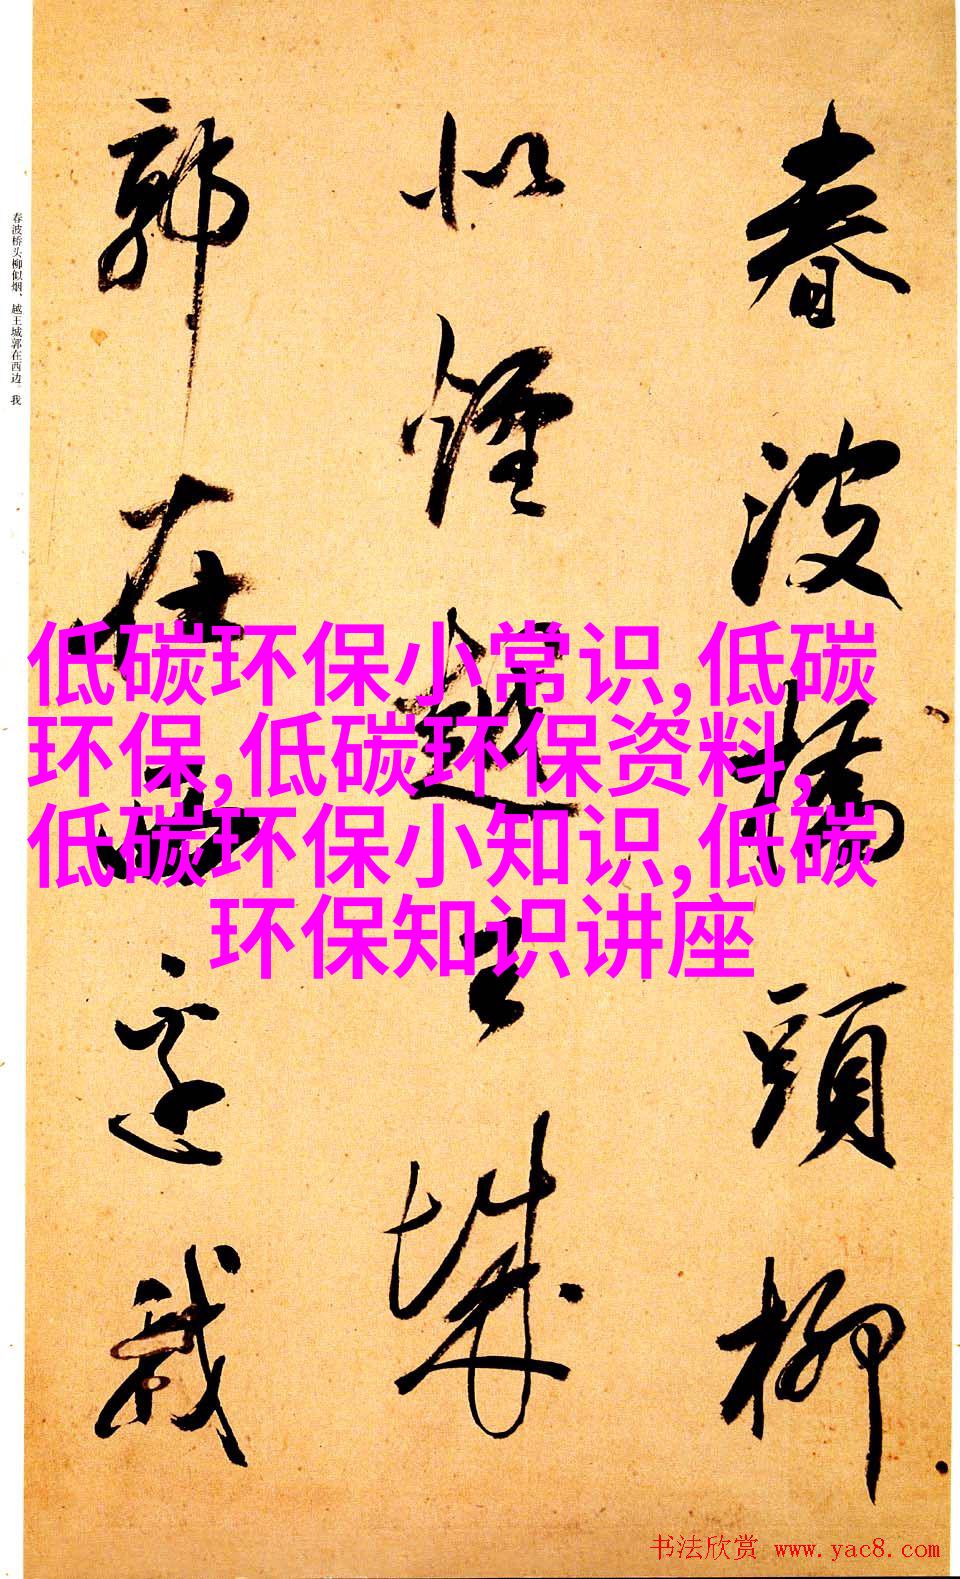 春波橋頭柳
似煙越王城
郭在西邊我
春波桥头柳似烟、越王城郭在西边。我
低碳环保小常识,低碳
环保,低碳环保资料,
低碳环保小知识,低碳
环保知识讲座
书法欣赏 www.yac8.com